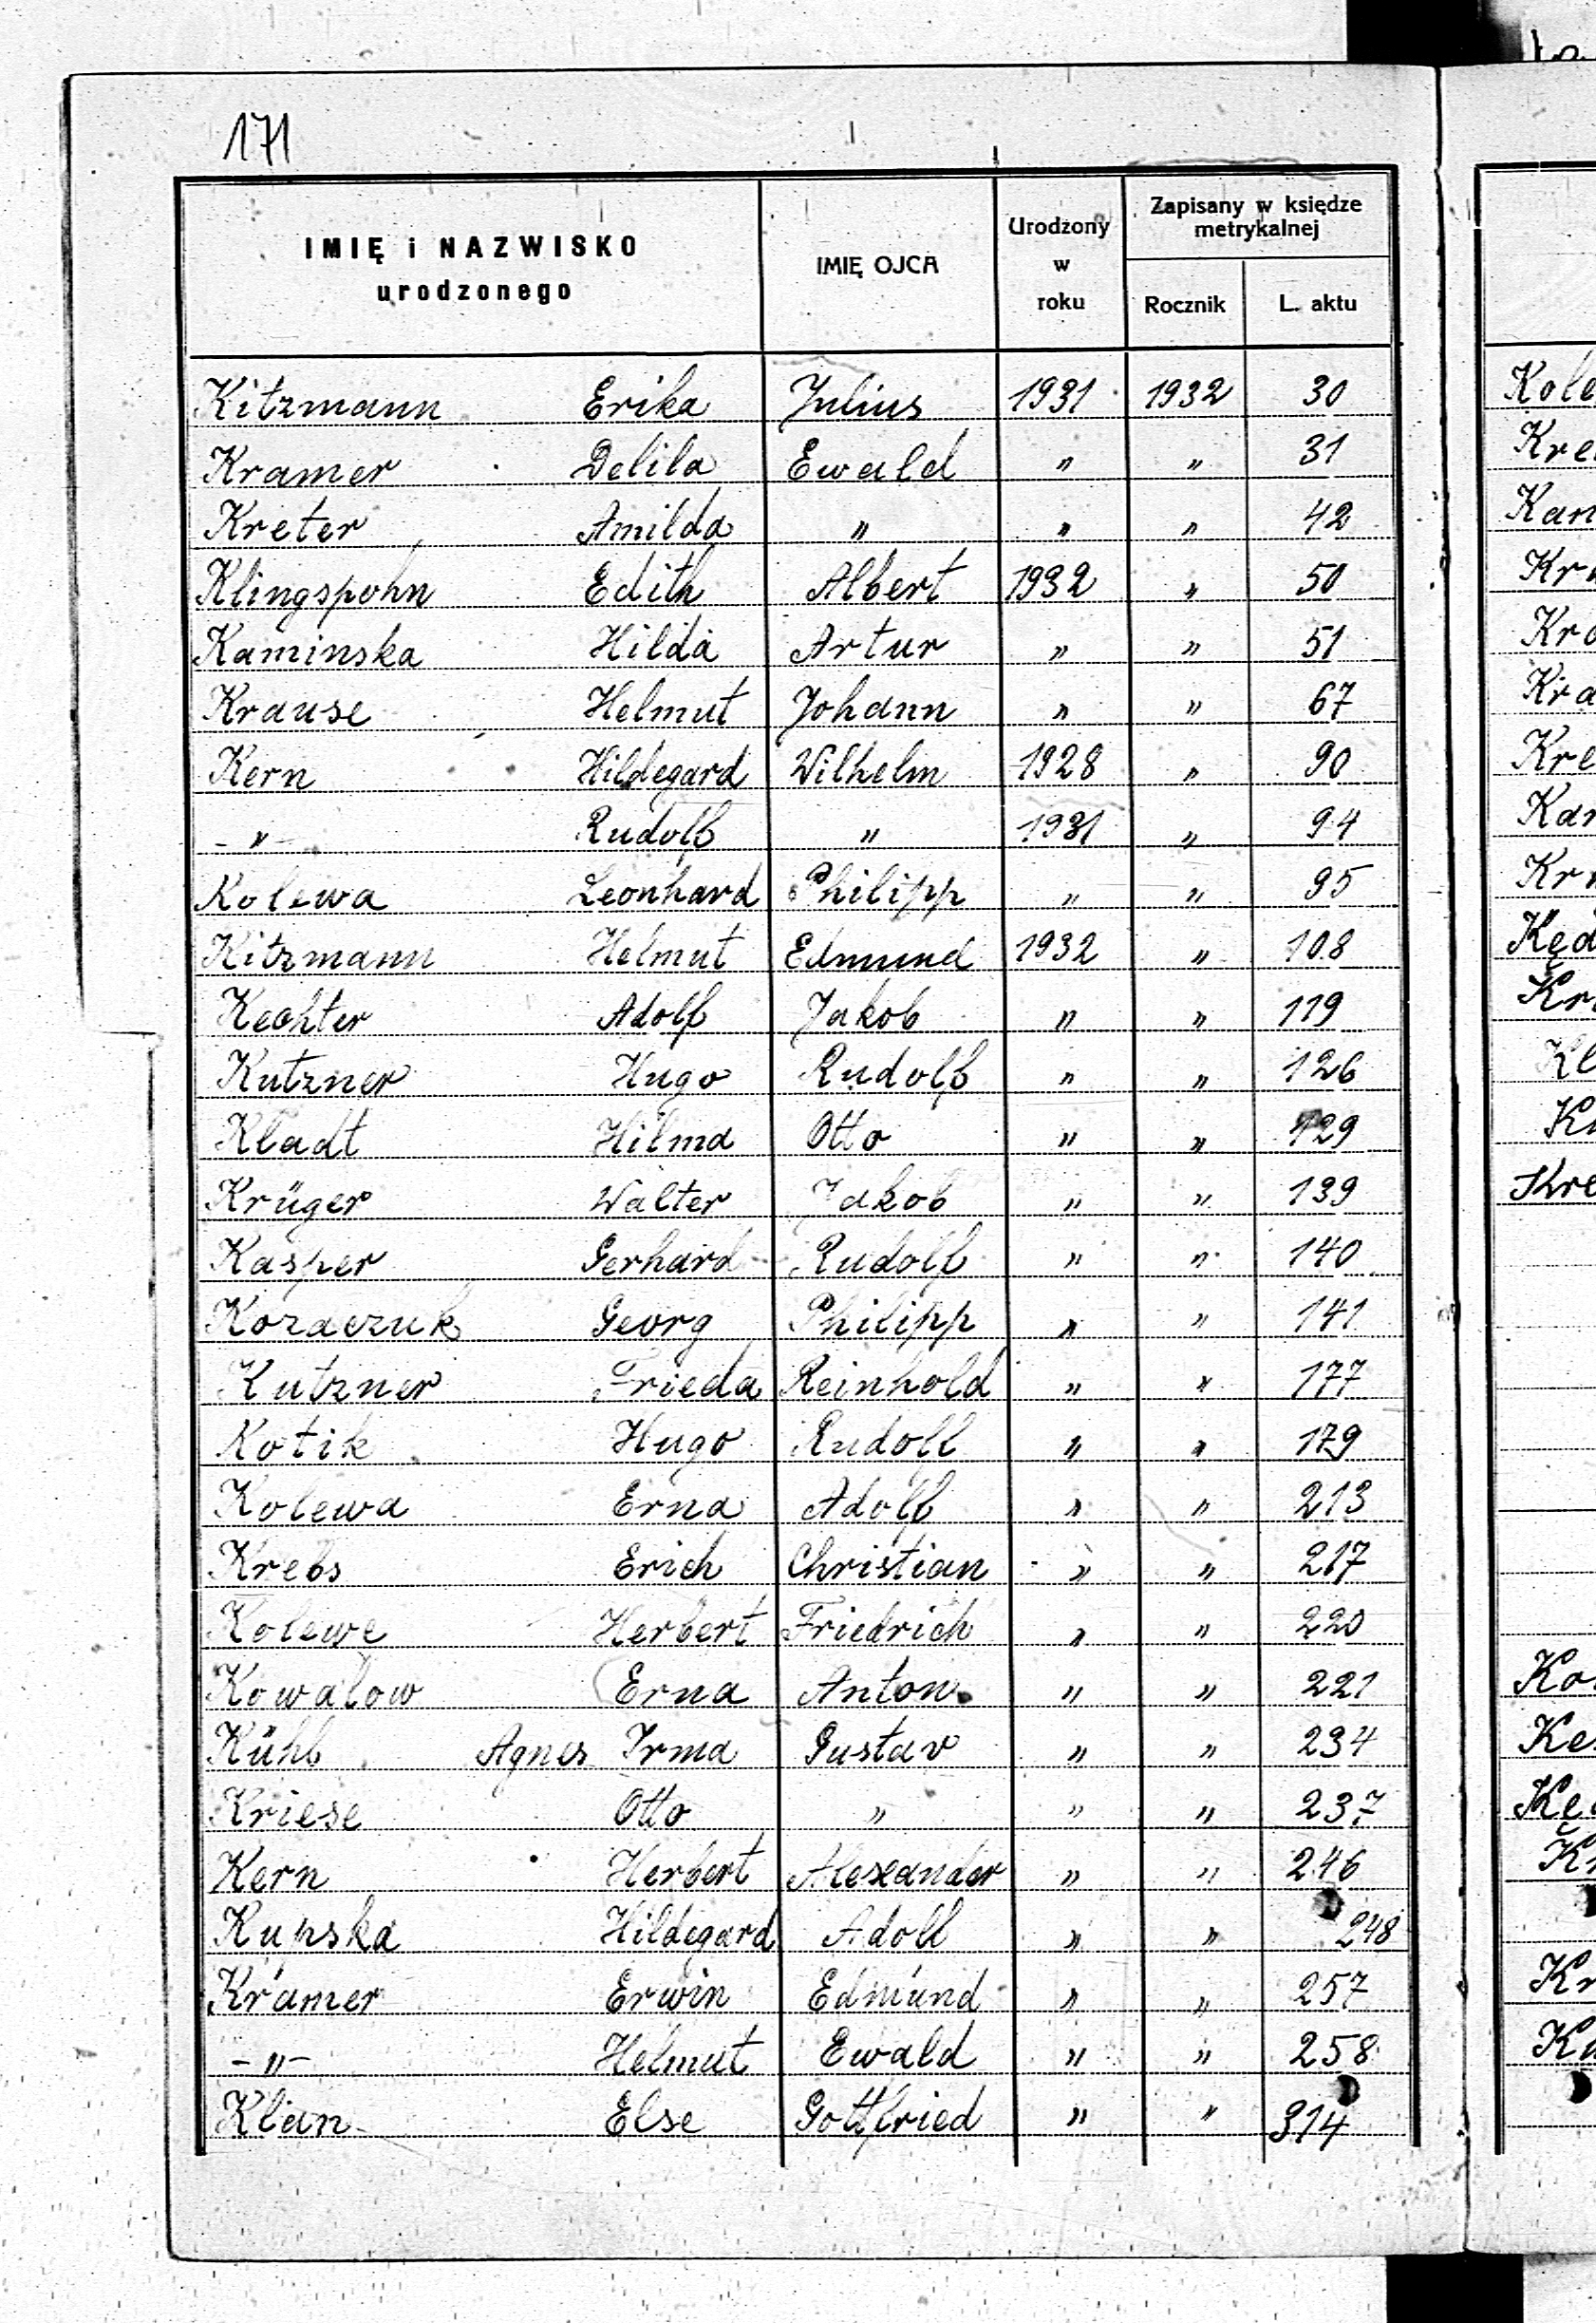 171
IMIĘ i NAZWISKO urodzonego | IMIĘ OJCA | Urodzony w roku | Zapisany w księdze metrykalnej
Rocznik | L. aktu
Kitzmann Erika Julius 1931 1932 30
Kramer Delila Ewald " " 31
Kreter Amilda " " " 42
Klingspohn Edith Albert 1932 " 50
Kaminska Hilda Artur " " 51
Krause Helmut Johann " " 67
Kern Hildegard Wilhelm 1928 " 90
-"- Rudolf " 1931 " 94
Kolewa Leonhard Philipp " " 95
Kitzmann Helmut Edmund 1932 " 108
Kechter Adolf Jakob " " 119
Kutzner Hugo Rudolf " " 126
Kladt Hilma Otto " " 129
Krüger Walter Jakob " " 139
Kasper Gerhard Rudolf " " 140
Kozaczuk Georg Philipp " " 141
Kutzner Frieda Reinhold " " 177
Kotik Hugo Rudolf " " 179
Kolewa Erna Adolf " " 213
Krebs Erich Christian " " 217
Kolewe Herbert Friedrich " " 220
Kowalow Erna Anton " " 221
Kühl Agnes Irma Gustav " " 234
Kriese Otto " " " 237
Kern Herbert Alexander " " 246
Kupska Hildegard Adolf " " 248
Krámer Erwin Edmund " " 257
-"- Helmut Ewald " " 258
Klan Else Gottfried " " 314